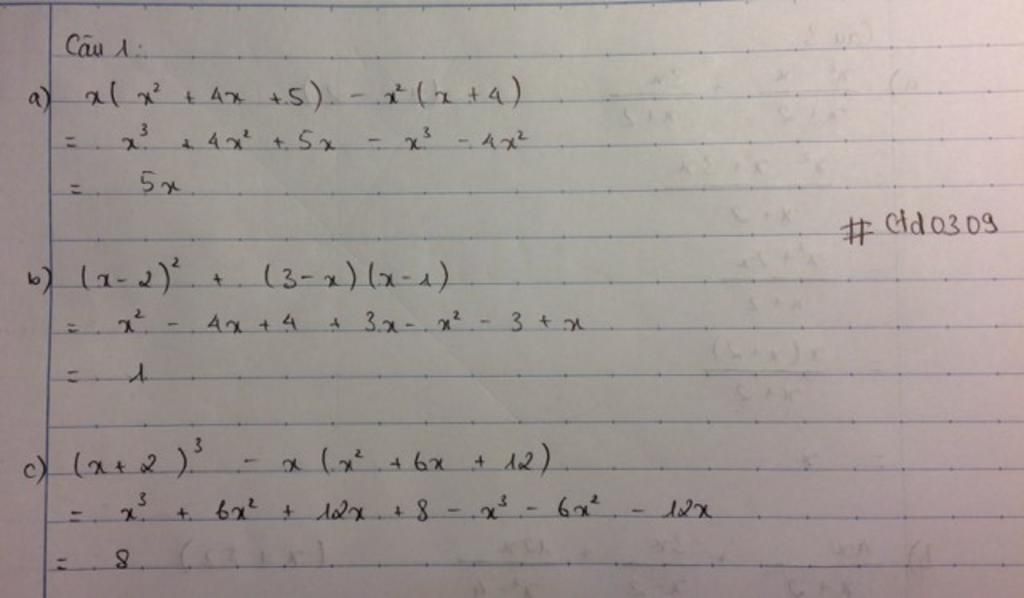 Câu 1:
a) x(x² + 4x + 5) - x²(x + 4)
= x³ + 4x² + 5x - x³ - 4x²
= 5x
# Ctd0309
b) (x - 2)² + (3 - x)(x - 1)
= x² - 4x + 4 + 3x - x² - 3 + x
= 1
c) (x + 2)³ - x(x² + 6x + 12)
= x³ + 6x² + 12x + 8 - x³ - 6x² - 12x
= 8